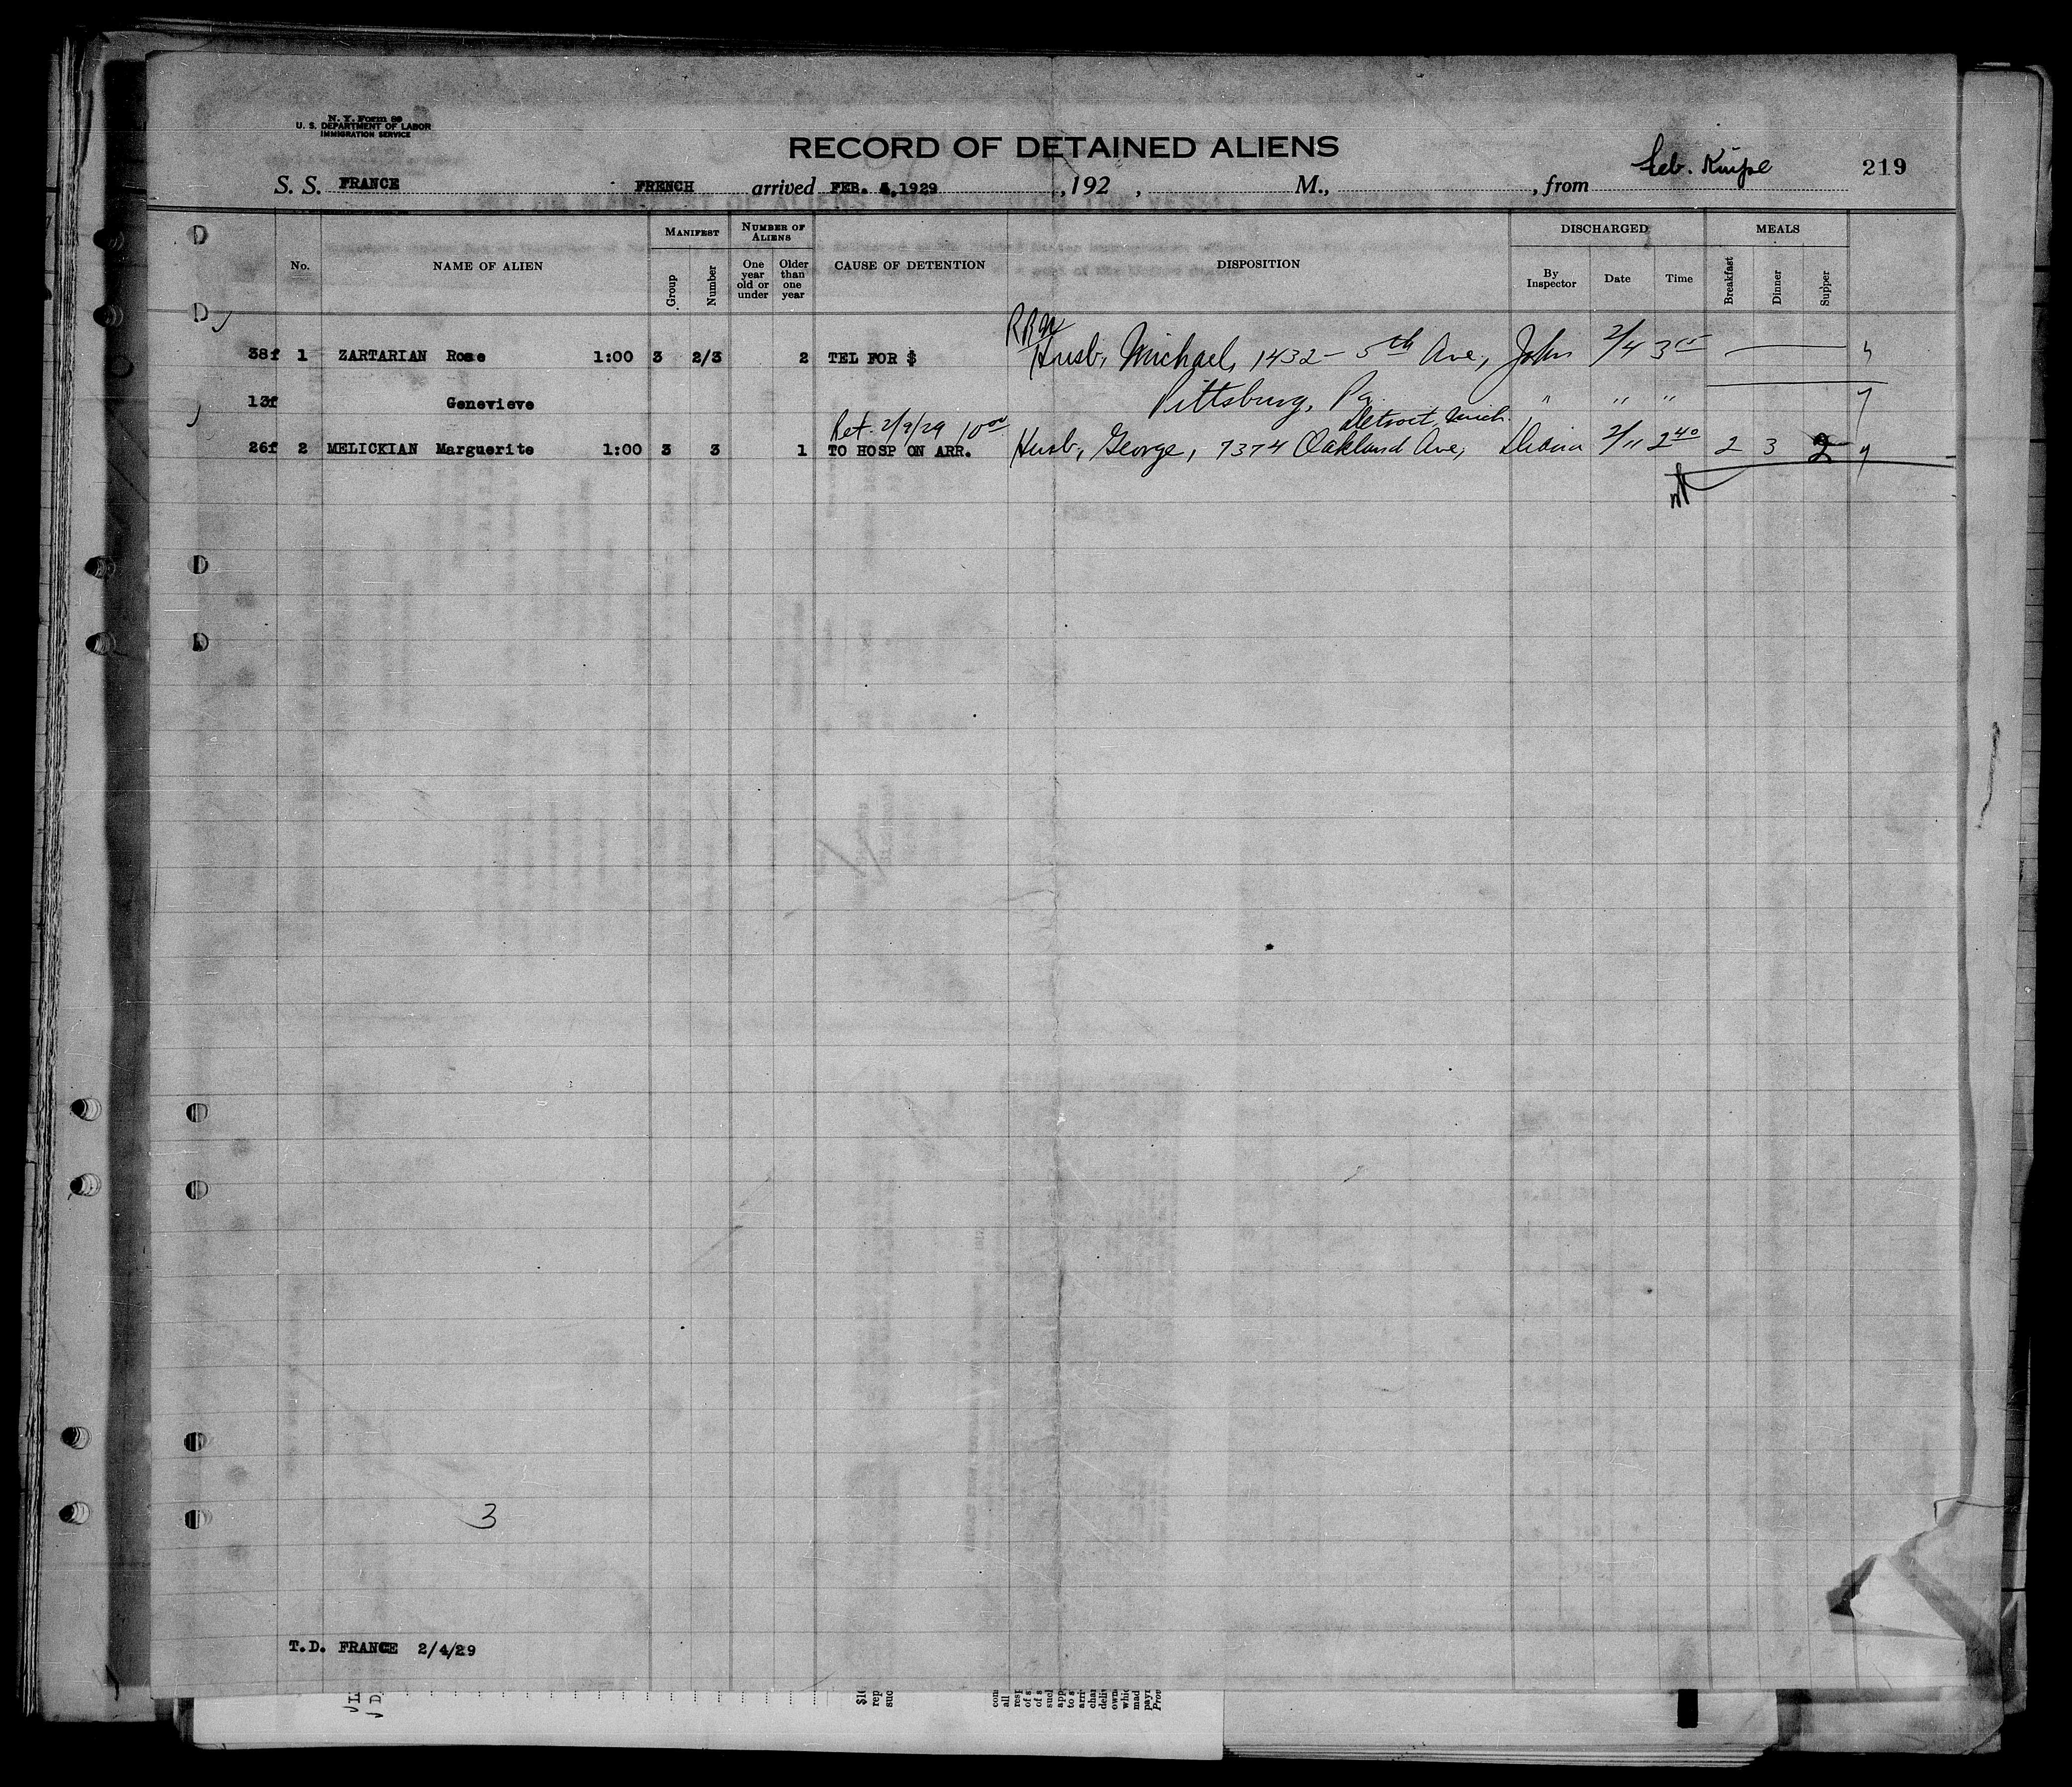 N. Y. Form 89
U. S. DEPARTMENT OF LABOR
IMMIGRATION SERVICE
RECORD OF DETAINED ALIENS
219
S. S. FRANCE FRENCH arrived FEB. 4, 1929, 192 , M., , from
MANIFEST NUMBER OF ALIENS DISCHARGED MEALS
No. NAME OF ALIEN Group Number One year old or under Older than one year CAUSE OF DETENTION DISPOSITION By Inspector Date Time Breakfast Dinner Supper
38f 1 ZARTARIAN Rose 1:00 3 2/3 2 TEL FOR $ Husb, Michael, 1432 - 5th Ave, John 2/4 3 15
13f Genevieve Pittsburg, Pa. " " "
Ret. 2/9/29 10 00 Detroit, Mich.
26f 2 MELICKIAN Marguerite 1:00 3 3 1 TO HOSP ON ARR. Husb, George, 7374 Oakland Ave, 2/11 2 40 2 3 2
3
T.D. FRANCE 2/4/29